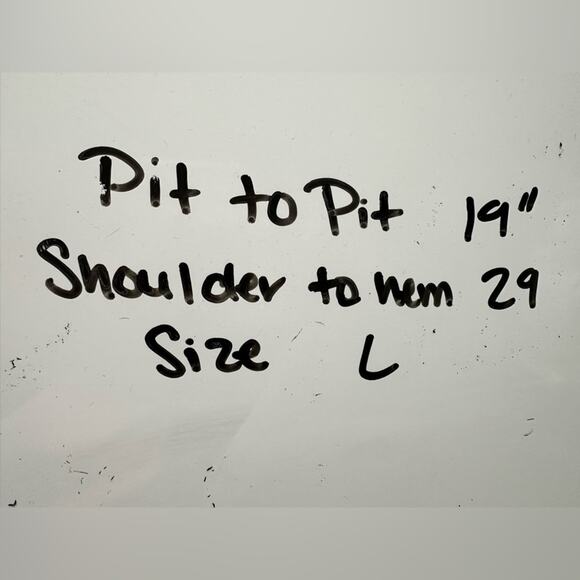 Pit to Pit 19"
Shoulder to hem 29
Size L